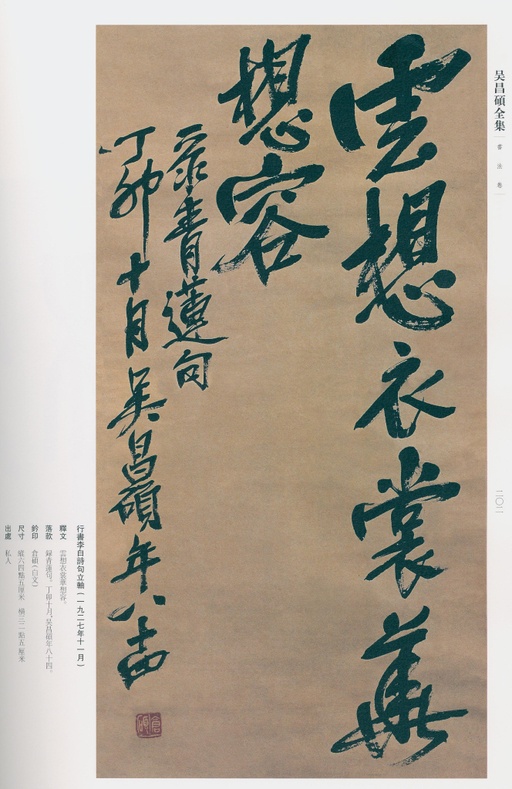 吴昌碩全集
書法卷
二〇二
雲想衣裳華
想容
录青蓮句
丁卯十月吴昌碩年八十四
行書李白詩句立軸（一九二七年十一月）
釋文　雲想衣裳華想容。
落款　録青蓮句。丁卯十月，吴昌碩年八十四。
鈐印　倉碩（白文）
尺寸　縱六四點五厘米　橫三一點五厘米
出處　私人